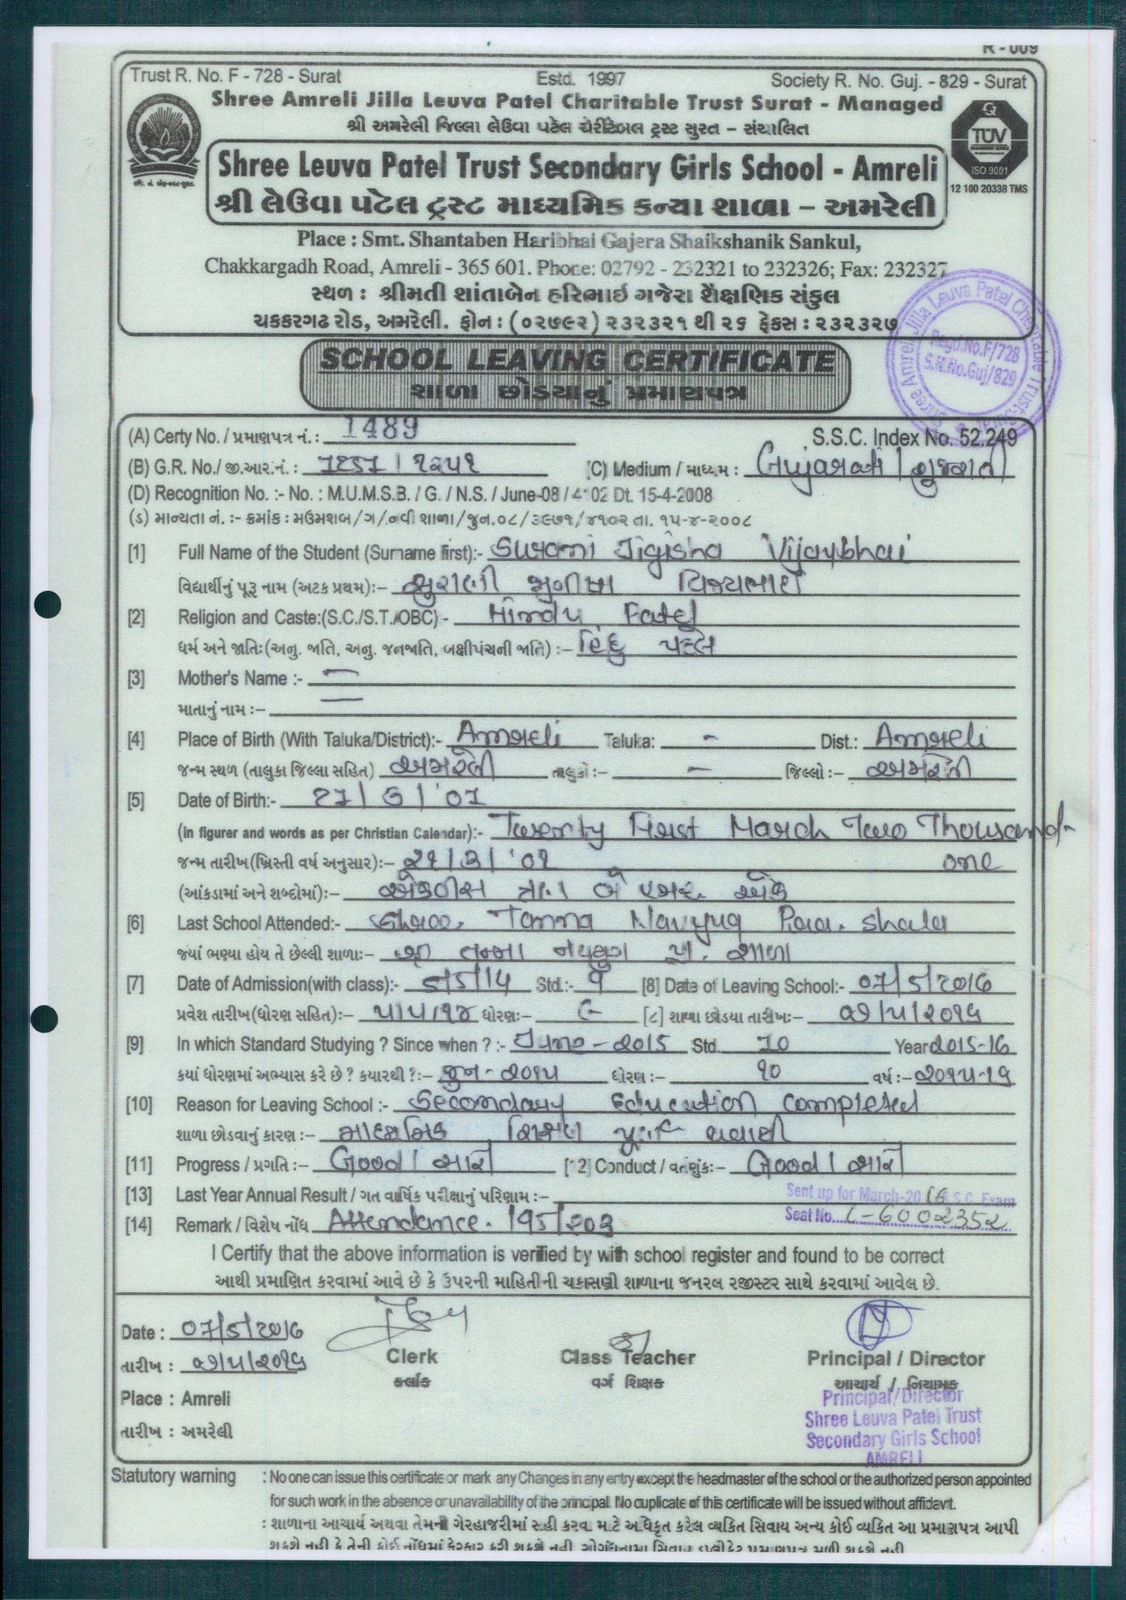 R - 009
Trust R. No. F - 728 - Surat Estd. 1997 Society R. No. Guj. - 829 - Surat
Shree Amreli Jilla Leuva Patel Charitable Trust Surat - Managed
શ્રી અમરેલી જિલ્લા લેઉવા પટેલ ચેરીટેબલ ટ્રસ્ટ સુરત – સંચાલિત
Shree Leuva Patel Trust Secondary Girls School - Amreli
શ્રી લેઉવા પટેલ ટ્રસ્ટ માધ્યમિક કન્યા શાળા – અમરેલી
TÜV
ISO 9001
12 100 20338 TMS
Place : Smt. Shantaben Haribhai Gajera Shaikshanik Sankul,
Chakkargadh Road, Amreli - 365 601. Phone: 02792 - 232321 to 232326; Fax: 232327
સ્થળ : શ્રીમતી શાંતાબેન હરિભાઇ ગજેરા શૈક્ષણિક સંકુલ
ચકકરગઢ રોડ, અમરેલી. ફોન : (૦૨૭૯૨) ૨૩૨૩૨૧ થી ૨૬ ફેકસ : ૨૩૨૩૨૭
Shree Amreli Jilla Leuva Patel Charitable Trust
Regd.No.F/728
S.R.No.Guj/829
SCHOOL LEAVING CERTIFICATE
શાળા છોડયાનું પ્રમાણપત્ર
(A) Certy No. / પ્રમાણપત્ર નં. : 1489 S.S.C. Index No. 52.249
(B) G.R. No./ જી.આર.નં. : 1251 / ૧૨૫૧ (C) Medium / માધ્યમ : Gujarati / ગુજરાતી
(D) Recognition No. :- No. : M.U.M.S.B. / G. / N.S. / June-08 / 4102 Dt. 15-4-2008
(ડ) માન્યતા નં. :- ક્રમાંક : મઉમશબ/ગ/નવી શાળા/જુન.૦૮/૩૯૭૧/૪૧૦૨ તા. ૧૫-૪-૨૦૦૮
[1] Full Name of the Student (Surname First):- Surani Jigisha Vijaybhai
વિદ્યાર્થીનું પૂરૂ નામ (અટક પ્રથમ):- સુરાણી જીગીષા વિજયભાઈ
[2] Religion and Caste:(S.C./S.T./OBC) - Hindu Patel
ધર્મ અને જાતિ:(અનુ. જાતિ, અનુ. જનજાતિ, બક્ષીપંચની જાતિ) :- હિંદુ પટેલ
[3] Mother's Name :- —
માતાનું નામ :- —
[4] Place of Birth (With Taluka/District):- Amreli Taluka: - Dist.: Amreli
જન્મ સ્થળ (તાલુકા જિલ્લા સહિત) અમરેલી તાલુકો :- - જિલ્લો : અમરેલી
[5] Date of Birth:- 21/3/'01
(in figurer and words as per Christian Calendar):- Twenty First March Two Thousand one
જન્મ તારીખ(ખ્રિસ્તી વર્ષ અનુસાર):- ૨૧/૩/'૦૧
(આંકડામાં અને શબ્દોમાં):- એકવીસ ત્રણ બે હજાર એક
[6] Last School Attended:- Shree. Tanna Navyug Pra. shala
જ્યાં ભણ્યા હોય તે છેલ્લી શાળા:- શ્રી તન્ના નવયુગ પ્રા. શાળા
[7] Date of Admission(with class):- 5/5/14 Std.:- 9 [8] Date of Leaving School:- 07/5/2016
પ્રવેશ તારીખ(ધોરણ સહિત):- ૫/૫/૧૪ ધોરણ:- ૯ [૮] શાળા છોડયા તારીખ:- ૦૭/૫/૨૦૧૬
[9] In which Standard Studying ? Since when ? :- June - 2015 Std 10 Year 2015-16
કયાં ધોરણમાં અભ્યાસ કરે છે? કયારથી? :- જુન - ૨૦૧૫ ધોરણ :- ૧૦ વર્ષ :- ૨૦૧૫-૧૬
[10] Reason for Leaving School :- Secondary Education completed
શાળા છોડવાનું કારણ :- માધ્યમિક શિક્ષણ પૂર્ણ થવાથી
[11] Progress / પ્રગતિ :- Good / સારી [12] Conduct / વર્તણુંક:- Good / સારી
[13] Last Year Annual Result / ગત વાર્ષિક પરીક્ષાનું પરિણામ :- Sent up for March-2016 S.S.C. Exam
[14] Remark / વિશેષ નોંધ Attendance. 195/203 Seat No. C-6002352
I Certify that the above information is verified by with school register and found to be correct
આથી પ્રમાણિત કરવામાં આવે છે કે ઉપરની માહિતીની ચકાસણી શાળાના જનરલ રજીસ્ટર સાથે કરવામાં આવેલ છે.
Date : 07/5/2016
તારીખ : ૦૭/૫/૨૦૧૬
Clerk Class Teacher Principal / Director
કલાર્ક વર્ગ શિક્ષક આચાર્ય / નિયામક
Place : Amreli
તારીખ : અમરેલી
Principal/Director
Shree Leuva Patel Trust
Secondary Girls School
AMRELI
Statutory warning : No one can issue this certificate or mark any Changes in any entry except the headmaster of the school or the authorized person appointed
for such work in the absence or unavailability of the principal. No duplicate of this certificate will be issued without affidavit.
: શાળાના આચાર્ય અથવા તેમની ગેરહાજરીમાં સહી કરવા માટે અધિકૃત કરેલ વ્યકિત સિવાય અન્ય કોઈ વ્યકિત આ પ્રમાણપત્ર આપી